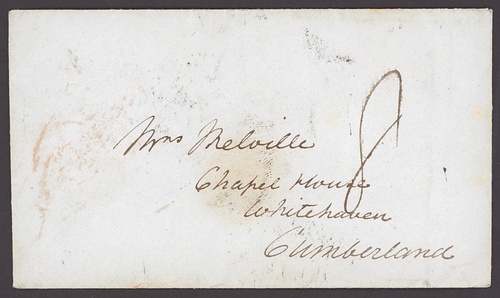 Mrs Melville
Chapel House
Whitehaven
Cumberland
8